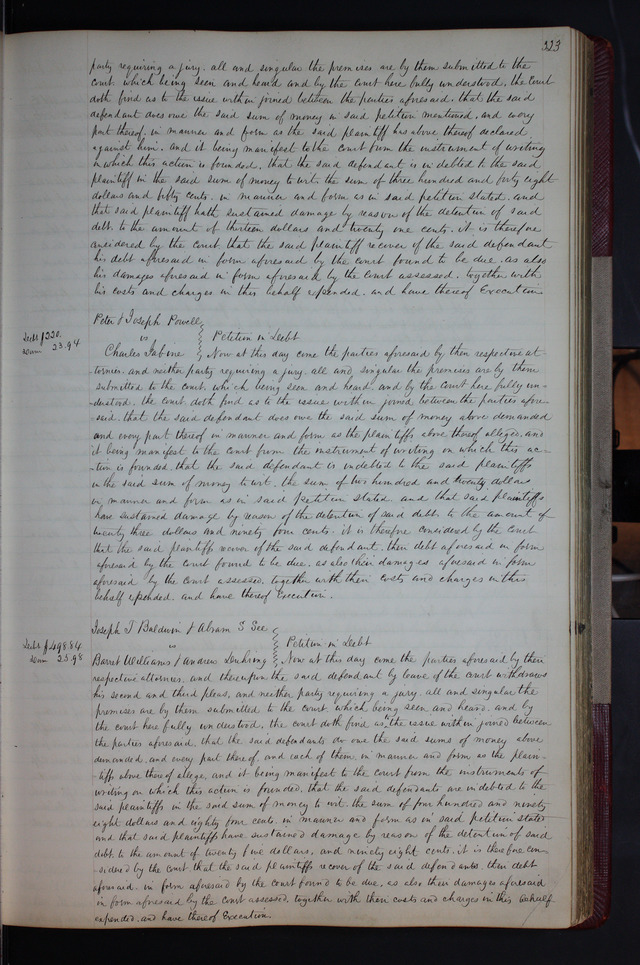 323
party requiring a jury. all and singular the premises are by them submitted to the
court. which being seen and heard and by the court here fully understood, the Court
doth find as to the issue within joined between the parties aforesaid. that the said
defendant does owe the said sum of money in said petition mentioned, and every
part thereof. in manner and form as the said plaintiff has above thereof declared
against him. and it being manifest to the court from the instrument of writing
on which this action is founded. that the said defendant is indebted to the said
plaintiff in the said sum of money to wit. the sum of three hundred and forty eight
dollars and fifty cents. in manner and form as in said petition stated. and
that said plaintiff hath sustained damage by reason of the detention of said
debt. to the amount of thirteen dollars and twenty one cents. it is therefore
considered by the court that the said plaintiff recover of the said defendant
his debt aforesaid in form aforesaid by the court found to be due. as also
his damages aforesaid in form aforesaid by the Court assessed. together with
his costs and charges in this behalf expended. and have thereof Execution
Peter & Joseph Powell
Debt $220.
Dam 23.94
vs Petition in Debt
Charles Now at this day come the parties aforesaid by their respective at-
tornies. and neither party requiring a jury. all and singular the premises are by them
submitted to the court. which being seen and heard. and by the court here fully un-
derstood. the court doth find as to the issue within joined between the parties afore
said. that the said defendant does owe the said sum of money above demanded
and every part thereof in manner and form as the plaintiffs above thereof allege. and
it being manifest to the court from the instrument of writing on which this ac-
tion is founded. that the said defendant is indebted to the said plaintiffs
in the said sum of money to wit. the sum of two hundred and twenty dollars
in manner and form as in said Petition stated. and that said plaintiffs
have sustained damage by reason of the detention of said debt. to the amount of
twenty three dollars and ninety four cents. it is therefore considered by the court
that the said plaintiffs recover of the said defendant. their debt aforesaid in form
aforesaid by the court found to be due. as also their damages aforesaid in form
aforesaid by the court assessed. together with their costs and charges in this
behalf expended. and have thereof Execution.
Joseph T Baldwin & Abram S See
Debt $498.84
Dam 25.98
vs Petition in Debt
Barret Williams & Andrew Now at this day come the parties aforesaid by their
respective attornies. and thereupon the said defendant by leave of the court withdraws
his second and third pleas, and neither party requiring a jury. all and singular the
premises are by them submitted to the court. which being seen and heard. and by
the court here fully understood. the court doth find as to the issue within joined between
the parties aforesaid. that the said defendants do owe the said sums of money above
demanded. and every part thereof. and each of them. in manner and form as the plain-
tiffs above thereof allege, and it being manifest to the court from the instruments of
writing on which this action is founded. that the said defendants are indebted to the
said plaintiffs in the said sum of money to wit. the sum of four hundred and ninety
eight dollars and eighty four cents. in manner and form as in said petition stated
and that said plaintiffs have sustained damage by reason of the detention of said
debt. to the amount of twenty five dollars, and ninety eight cents. it is therefore con-
sidered by the court. that the said plaintiffs recover of the said defendants their debt
aforesaid. in form aforesaid by the court found to be due, as also their damages aforesaid
in form aforesaid by the court assessed. together with their costs and charges in this behalf
expended. and have thereof Execution.